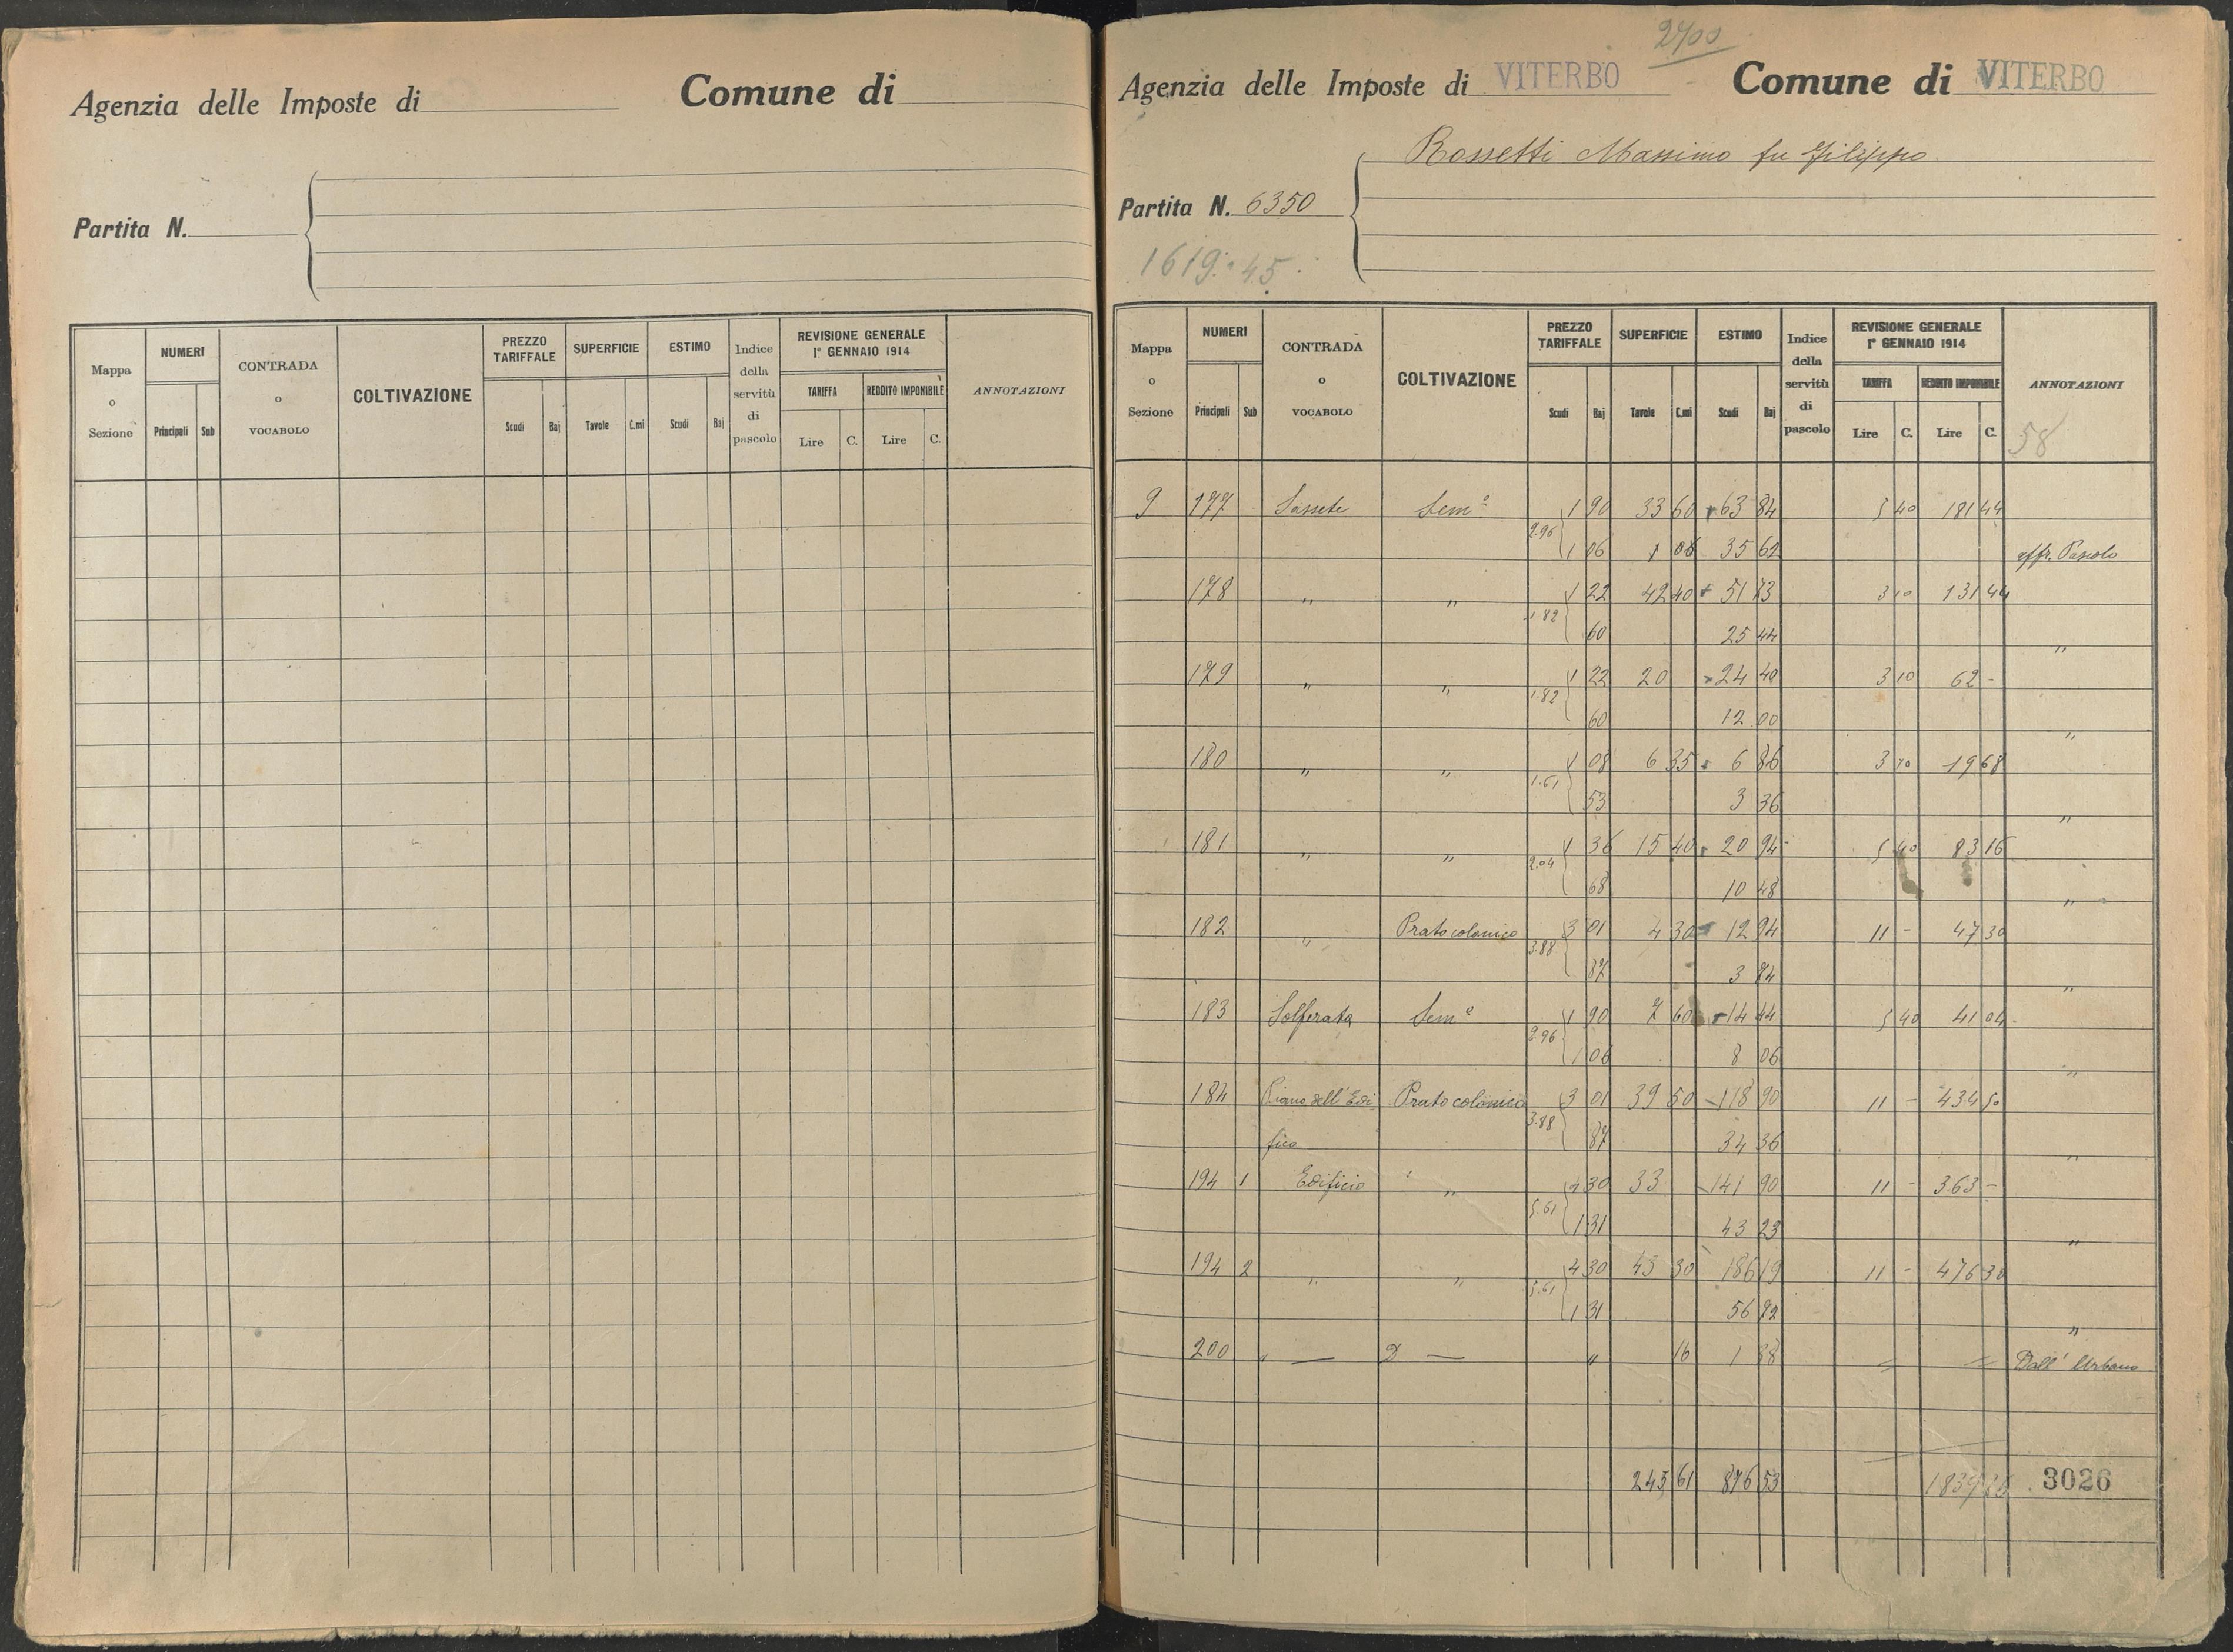 Agenzia delle Imposte di Comune di
Partita N.
Mappa o Sezione NUMERI Principali Sub CONTRADA o VOCABOLO COLTIVAZIONE PREZZO TARIFFALE Scudi Baj SUPERFICIE Tavole C.mi ESTIMO Scudi Baj Indice della servitù di pascolo REVISIONE GENERALE 1° GENNAIO 1914 TARIFFA Lire C. REDDITO IMPONIBILE Lire C. ANNOTAZIONI
2700
Agenzia delle Imposte di VITERBO Comune di VITERBO
Rossetti Massimo fu Filippo
Partita N. 6350
1619.45
Mappa o Sezione NUMERI Principali Sub CONTRADA o VOCABOLO COLTIVAZIONE PREZZO TARIFFALE Scudi Baj SUPERFICIE Tavole C.mi ESTIMO Scudi Baj Indice della servitù di pascolo REVISIONE GENERALE 1° GENNAIO 1914 TARIFFA Lire C. REDDITO IMPONIBILE Lire C. ANNOTAZIONI
58
9 177 Sassete Sem° 1 90 33 60 63 84 5 40 181 44
2.96 1 06 35 62 affr. Pascolo
178 " " 1 22 42 40 51 73 3 10 131 44
1.82 60 25 44 "
179 " " 1 22 20 24 40 3 10 62 -
1.82 60 12 00 "
180 " " 1 08 6 35 6 86 3 10 19 68
1.61 53 3 36 "
181 " " 1 36 15 40 20 94 5 40 83 16
2.04 68 10 48 "
182 " Prato colonico 3 01 4 30 12 94 11 - 47 30
3.88 87 3 74 "
183 Solferata Sem° 1 90 7 60 14 44 5 40 41 04
2.96 1 06 8 06 "
184 Piano dell'Edi Prato colonico 3 01 39 50 118 90 11 - 434 50
fico 3.88 87 34 36 "
194 1 Edificio " 4 30 33 141 90 11 - 363 -
5.61 1 31 43 23 "
194 2 " " 4 30 43 30 186 19 11 - 476 30
5.61 1 31 56 72 "
200 " — D — " 16 1 88 Dall' Urbano
245 61 876 53 3026